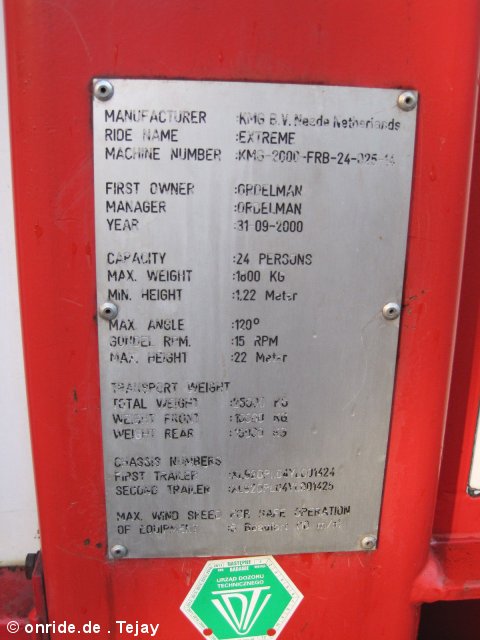 MANUFACTURER :KMG B.V. Neede Netherlands
RIDE NAME :EXTREME
MACHINE NUMBER :KMG-2000-FRB-24-025-14
FIRST OWNER :ORDELMAN
MANAGER :ORDELMAN
YEAR :31-09-2000
CAPACITY :24 PERSONS
MAX. WEIGHT :1800 KG
MIN. HEIGHT :1,22 Meter
MAX. ANGLE :120°
GONDEL RPM. :15 RPM
MAX. HEIGHT :22 Meter
TRANSPORT WEIGHT
TOTAL WEIGHT KG
WEIGHT FRONT KG
WEIGHT REAR KG
CHASSIS NUMBERS
FIRST TRAILER
SECOND TRAILER
MAX. WIND SPEED FOR SAFE OPERATION
OF EQUIPMENT Beaufort
NASTĘPNE
BADANIE
URZĄD DOZORU
TECHNICZNEGO
UDT
© onride.de . Tejay